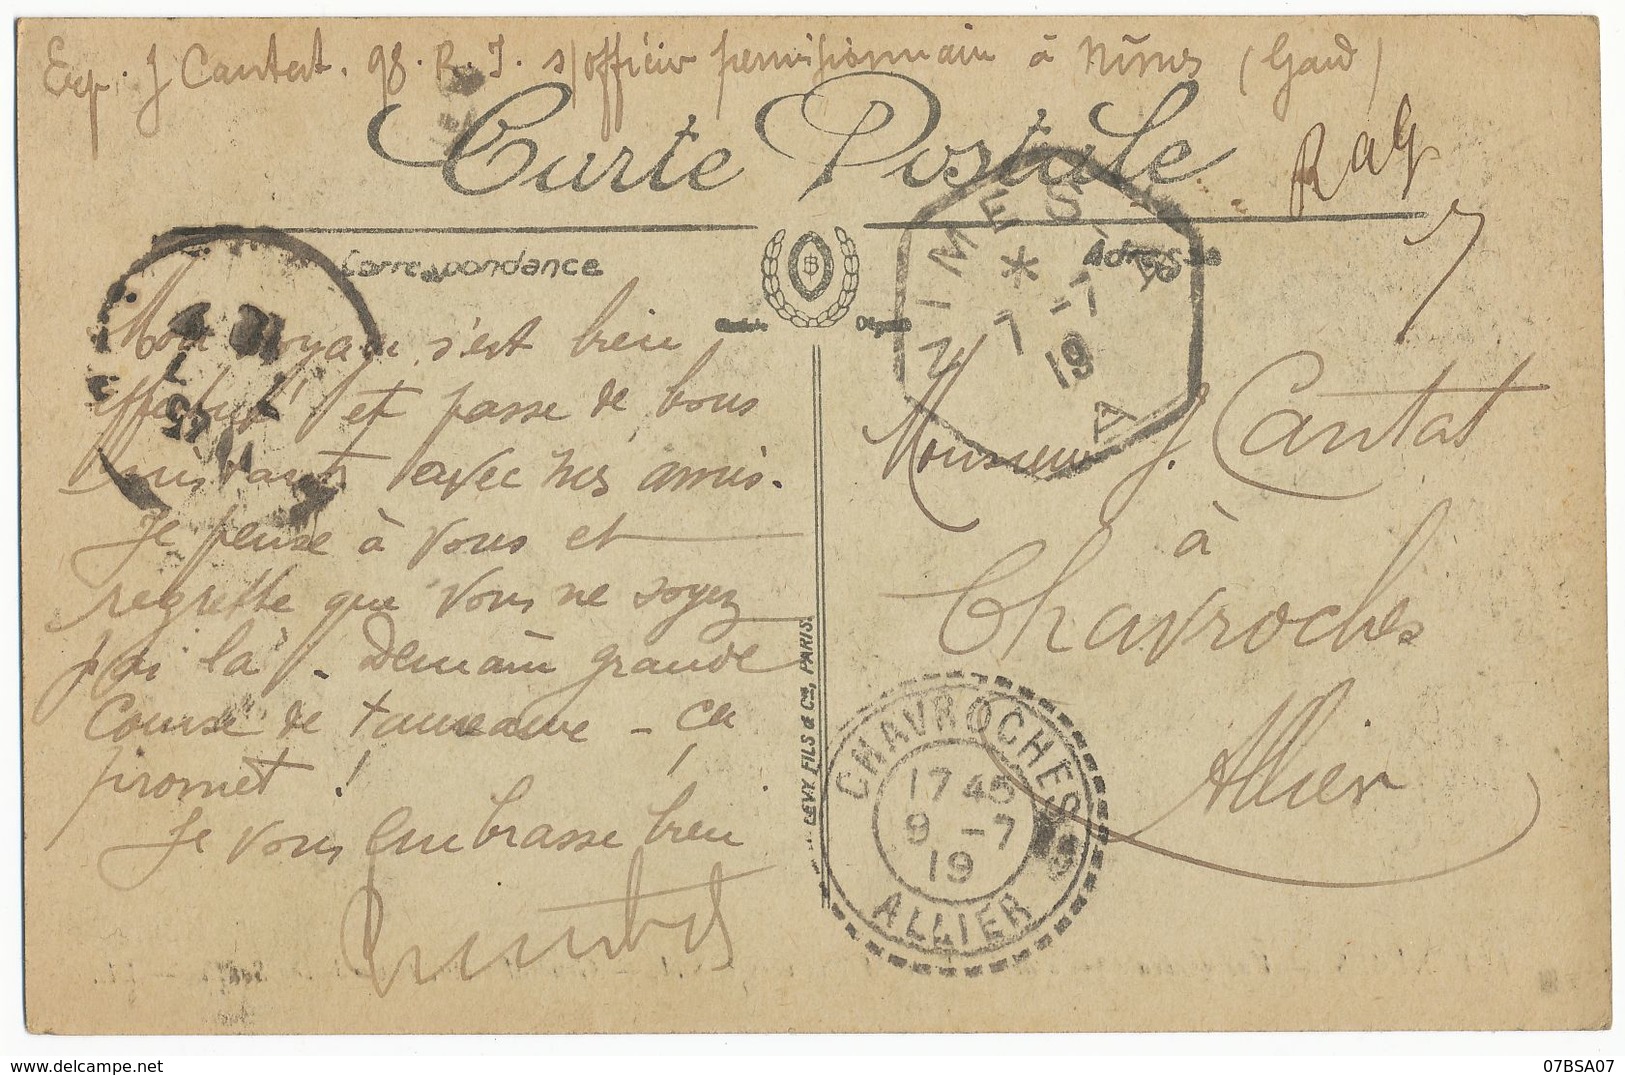 Exp. J Cantat. 98. R. I. s/officier permissionnaire à Nîmes (Gard)
Carte Postale
Correspondance
Adresse
NIMES
*
7 -7
19
A
Mon voyage s'est bien
effectué et passe de bons
instants avec nos amis.
Je pense à vous et
regrette que vous ne soyez
pas là. Demain grande
Course de taureaux - ça
promet !
Je vous embrasse bien
LEVY FILS & Cie, PARIS.
Monsieur J. Cantat
à
Chavroches
Allier
CHAVROCHES
17 45
9 -7
19
ALLIER
07BSA07